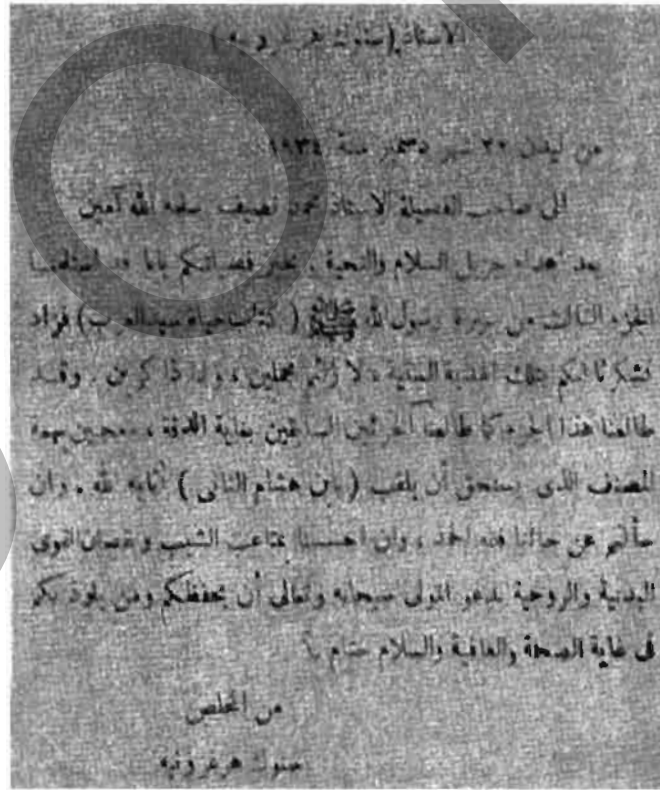 الاستاذ (سنوك هرغرونيه)
من ليدن ٢٢ شهر دسمبر سنة ١٩٣٤
الى صاحب الفضيلة الاستاذ محمد نصيف سلمه الله آمين
بعد اهداء جزيل السلام والتحية ، نخبر فضيلتكم باننا قد استلمنا
الجزء الثالث من سيرة رسول الله ﷺ ( كتاب حياة سيد العرب ) فزاد
تشكرنا لكم تلك الهدية السنية ، لا زلتم مجملين ، ولنا ذاكرين . وقد
طالعنا هذا الجزء كما طالعنا الجزئين السابقين بغاية الدقة ، معجبين بهمة
المصنف الذى يستحق أن يلقب ( بابن هشام الثانى ) أثابه الله . وان
سألتم عن حالنا فلله الحمد ، وان احسسنا بمتاعب الشيب ونقصان القوى
البدنية والروحية ندعو المولى سبحانه وتعالى أن يحفظكم ومن يلوذ بكم
فى غاية الصحة والعافية والسلام ختام
من المخلص
سنوك هرغرونيه